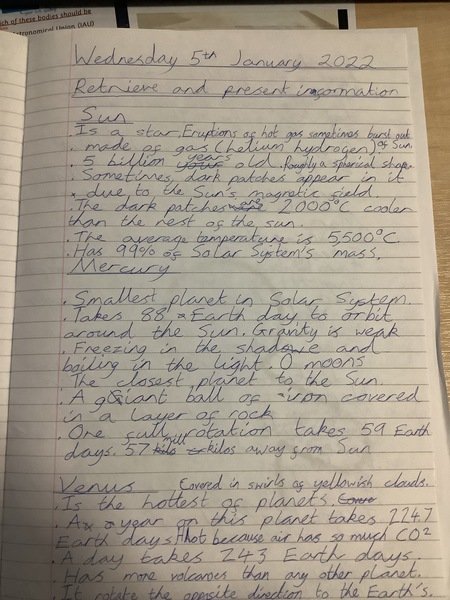 ich of these bodies should be
stronomical Union (IAU)
Wednesday 5th January 2022
Retrieve and present information
Sun
. Is a star. Eruptions of hot gas sometimes burst out of Sun
. made of gas (helium hydrogen)
. 5 billion years old. Roughly a spherical shape.
. Sometimes dark patches appear in it
. due to the Sun's magnetic field
. The dark patches are 2000°C cooler
than the rest of the sun.
. The average temperature is 5,500°C
. Has 99% of Solar System's mass.
Mercury
. Smallest planet in Solar System.
. Takes 88 Earth day to orbit
around the Sun. Gravity is weak
. Freezing in the shadowe and
boiling in the light. 0 moons
. The closest planet to the Sun.
. A giant ball of iron covered
in a layer of rock
. One full rotation takes 59 Earth
days. 57 mill kilos away from Sun
Venus Covered in swirls of yellowish clouds.
. Is the hottest of planets.
. A year on this planet takes 224.7
Earth days. Hot because air has so much CO²
. A day takes 243 Earth days.
. Has more volcanoes than any other planet.
. It rotate the opposite direction to the Earth's.